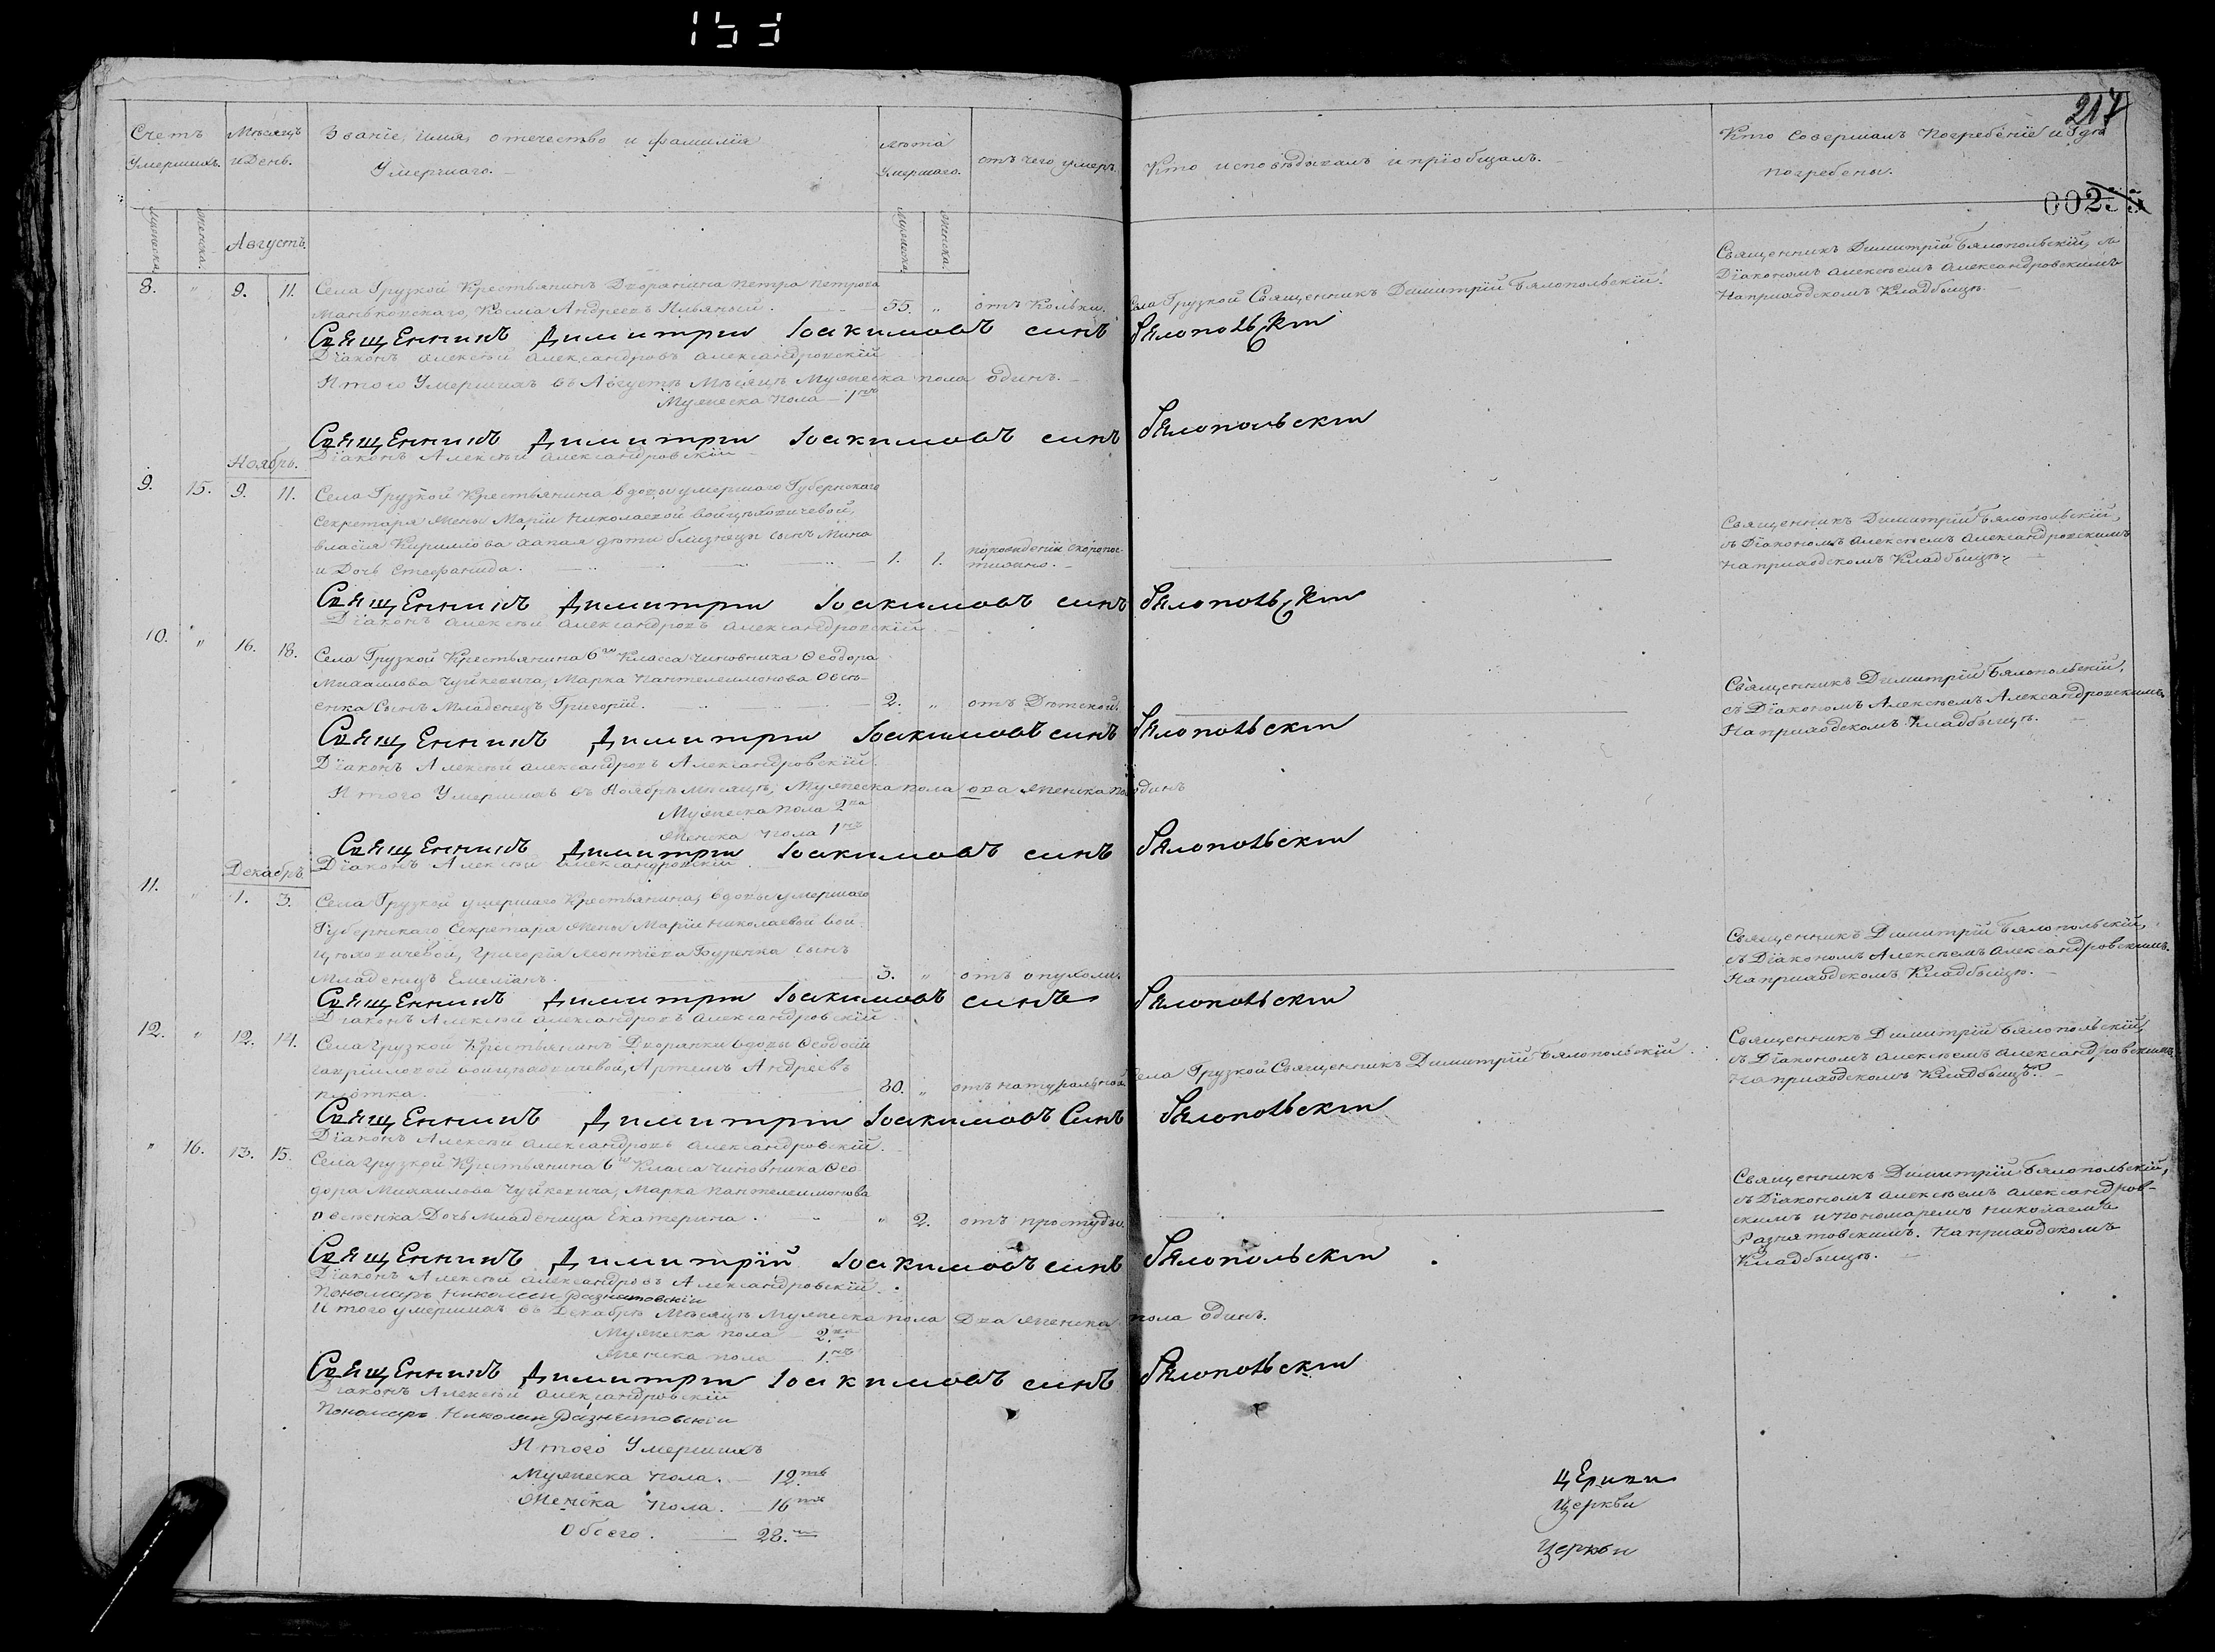 217
00255
Счетъ Умершихъ.
Мѣсяцъ и День.
Званіе, имя, отечество и фамилія
Умершаго.
лѣта Умершаго.
отъ чего умеръ.
Кто исповѣдывалъ и пріобщалъ.
Кто совершалъ Погребеніе и Гдѣ
погребены.
Мужеска.
женска.
Августъ.
Мужеска
женска.
8. " 9. 11. Села Грузкой Крестьянинъ Дворянина Петра Петрова
Маньковскаго, Косма Андреевъ 55. " отъ Кольки. Села Грузкой Священникъ Димитрій Бялопольскій.
Священникъ Димитрій Бялопольскій, съ
Діакономъ Алексѣемъ Александровскимъ
На приходскомъ Кладбыщѣ.
Священникъ Димитрии Іоакимовъ синъ Бялопольскии
Діаконъ Алексѣй Александровъ Александровскій
Итого Умершихъ въ Августѣ Мѣсяцѣ Мужеска пола одинъ.
Мужеска пола 1нъ
Священникъ Димитрии Іоакимовъ синъ Бялопольскии
Діаконъ Алексѣй Александровскій
Ноябрь.
9. 15. 9. 11. Села Грузкой Крестьянина вдовы умершаго Губернскаго
Секретаря жены Маріи Николаевой Войцѣховичевой,
Власія Кириллова дѣти близнецы сынъ Мина
и Дочь Стефанида. 1. 1. по рождении скоропостижно.
Священникъ Димитрій Бялопольскій,
съ Діакономъ Алексѣемъ Александровскимъ
На приходскомъ Кладбыщѣ.
Священникъ Димитрии Іоакимовъ синъ Бялопольскии
Діаконъ Алексѣй Александровъ Александровскій.
10. " 16. 18. Села Грузкой Крестьянина 6го Класса Чиновника Ѳеодора
Михаилова Чуйкевича, Марка Пантелеимонова Овсѣ-
енка Сынъ Младенецъ Григорій. 2. " отъ Дѣтской.
Священникъ Димитрій Бялопольскій,
съ Діакономъ Алексѣемъ Александровскимъ
На приходскомъ Кладбыщѣ.
Священникъ Димитрии Іоакимовъ синъ Бялопольскии
Діаконъ Алексѣй Александровъ Александровскій.
Итого Умершихъ въ Ноябрѣ Мѣсяцѣ, Мужеска пола два, женска пола одинъ
Мужеска пола 2ва
женска пола 1нъ
Священникъ Димитрии Іоакимовъ синъ Бялопольскии
Діаконъ Алексѣй Александровскій
Декабрь.
11. " 1. 3. Села Грузкой умершаго Крестьянина, вдовы умершаго
Губернскаго Секретаря жены Маріи Николаевой Вой-
цѣховичевой, Григорія Леонтіева сынъ
Младенецъ Емеліанъ. 3. " отъ опухоли.
Священникъ Димитрій Бялопольскій,
съ Діакономъ Алексѣемъ Александровскимъ.
На приходскомъ Кладбыщѣ.
Священникъ Димитрии Іоакимовъ синъ Бялопольскии
Діаконъ Алексѣй Александровъ Александровскій
12. " 12. 14. Села Грузкой Крестьянинъ Дворянки вдовы Ѳеодосіи
Гавриловой Войцѣховичевой, Артемъ Андреевъ
Плотка. 80. " отъ натуральной. Села Грузкой Священникъ Димитрій Бялопольскій.
Священникъ Димитрій Бялопольскій,
съ Діакономъ Алексѣемъ Александровскимъ
На приходскомъ Кладбыщѣ.
Священникъ Димитрии Іоакимовъ Синъ Бялопольскии
Діаконъ Алексѣй Александровъ Александровскій.
" 16. 13. 15. Села Грузкой Крестьянина 6го Класса Чиновника Ѳео-
дора Михаилова Чуйкевича, Марка Пантелеимонова
Овсѣенка Дочь Младеница Екатерина. " 2. отъ простуды.
Священникъ Димитрій Бялопольскій,
съ Діакономъ Алексѣемъ Александров-
скимъ и Пономаремъ Николаемъ
Разнятовскимъ. На приходскомъ
Кладбыщѣ.
Священникъ Димитрій Іоакимовъ синъ Бялопольскии
Діаконъ Алексѣй Александровъ Александровскій.
Пономаръ Николаи Разнятовскіи
Итого умершихъ въ Декабрѣ Мѣсяцѣ Мужеска пола Два женска пола одинъ.
Мужеска пола 2ва
женска пола 1нъ
Священникъ Димитрии Іоакимовъ синъ Бялопольскии
Діаконъ Алексѣй Александровскій
Пономаръ Николаи Разнятовскіи
Итого Умершихъ
Мужеска пола. 12ть
Женска пола. 16ть
Обоего. 28.
Церкви
Церкви
Церкви